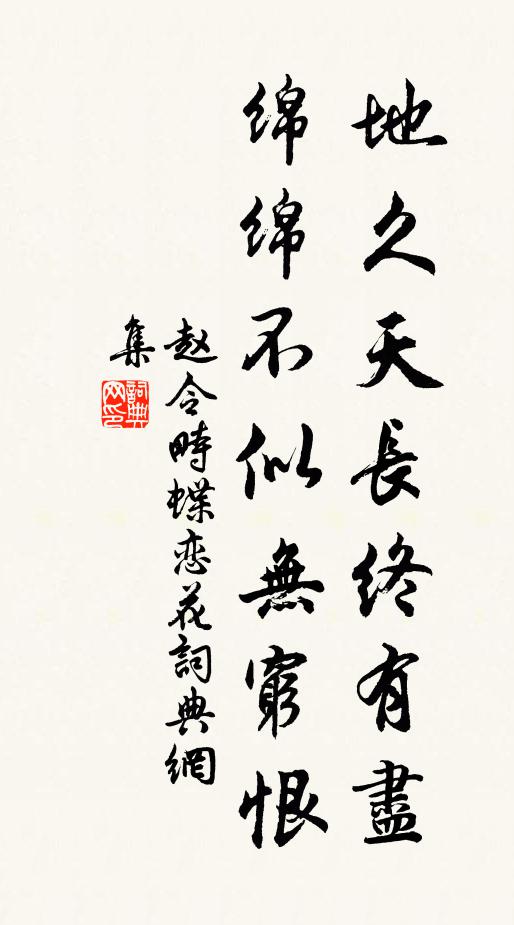 地久天長終有盡
绵绵不似無窮恨
赵令畤蝶恋花詞典網
集
詞典
网印